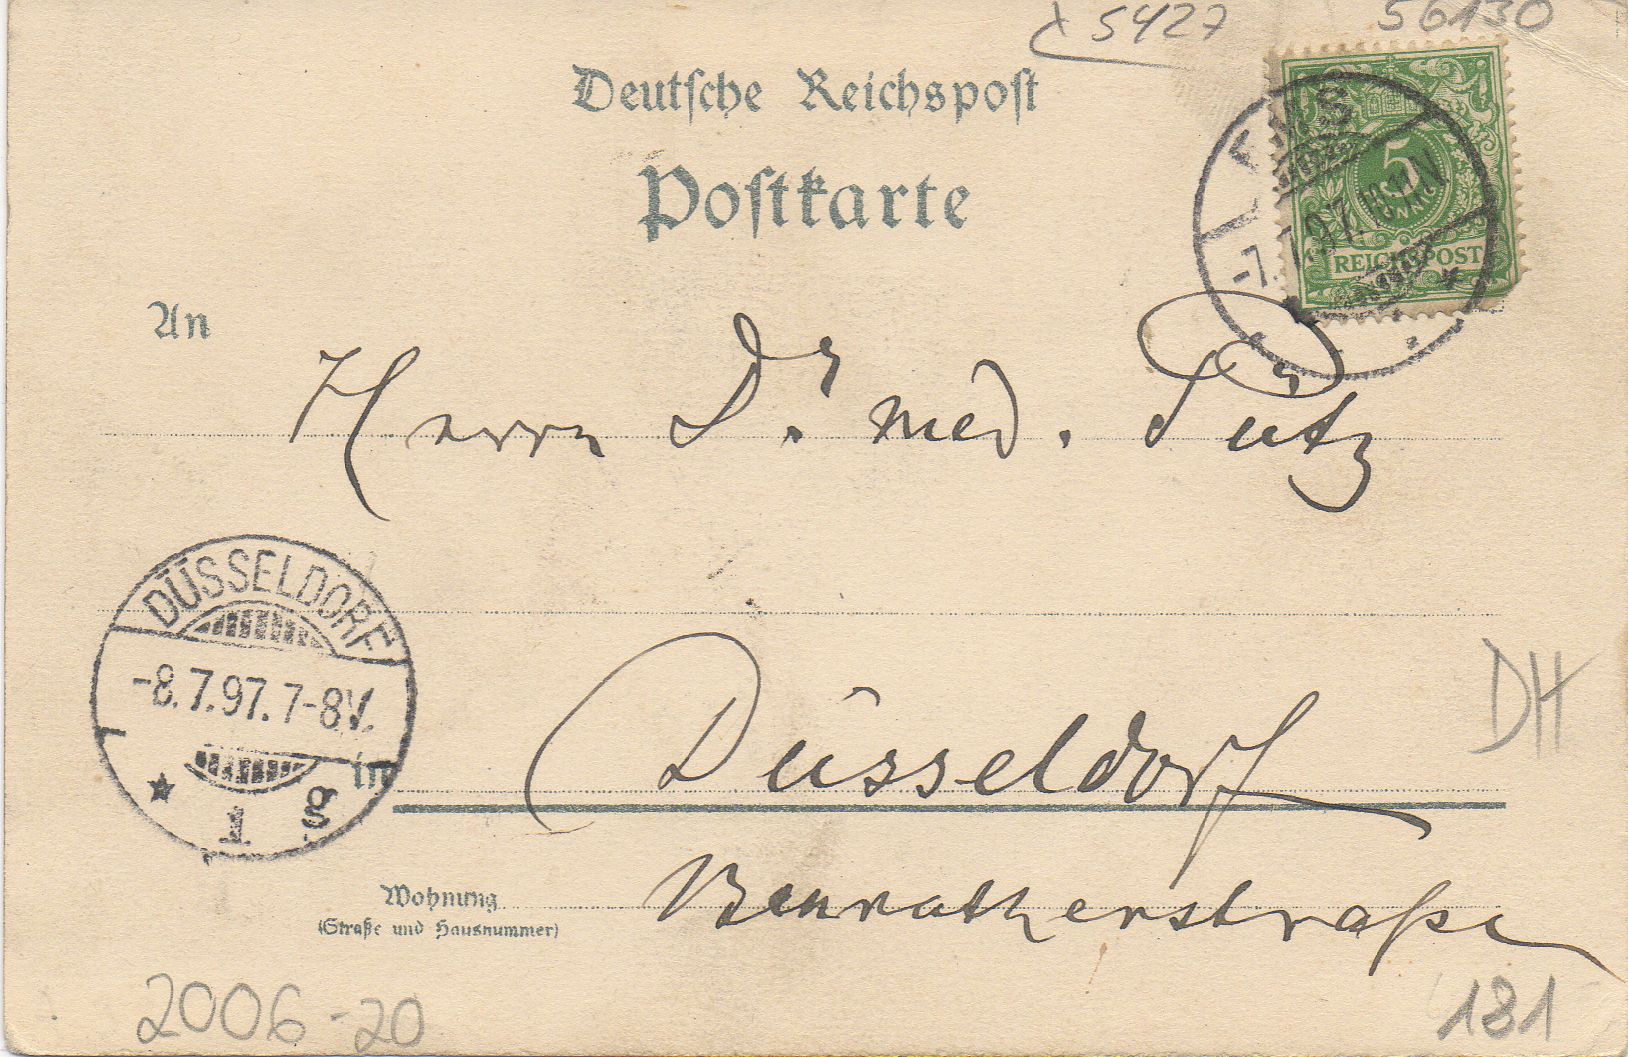 5427
56130
Deutsche Reichspost
Postkarte
EMS
5
REICHSPOST
An
Herrn Dr. med. Pütz
DÜSSELDORF
-8.7.97.7-8V.
1 g
in Düsseldorf
DH
Wohnung
(Straße und Hausnummer)
Benratherstraße
2006-20
181